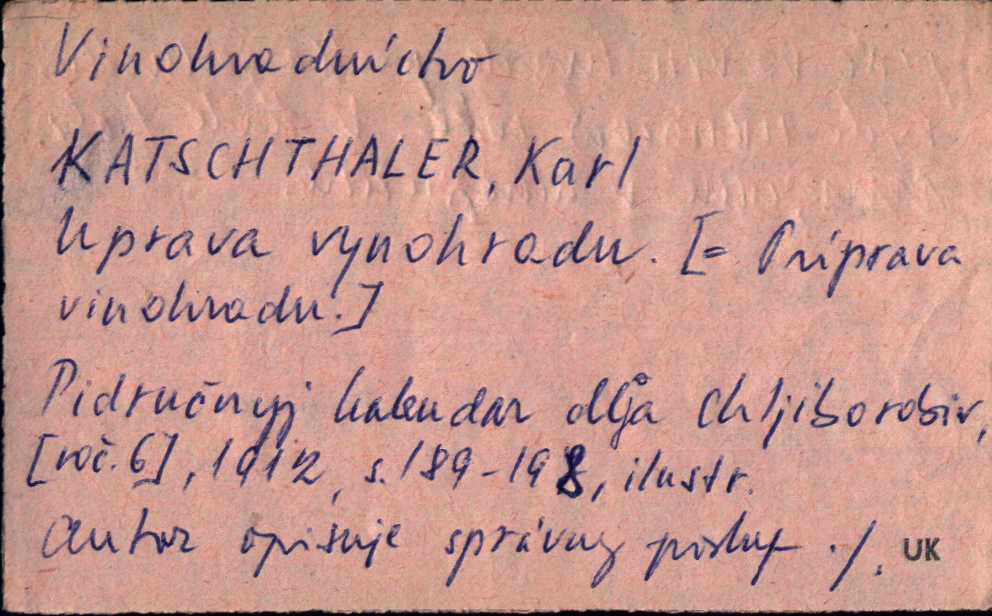 Vinohradníctvo
KATSCHTHALER, Karl
Uprava vynohradu. [= Príprava
vinohradu.]
Pidručnyj kalendar dlja chljiborobiv,
[roč. 6], 1912, s. 189-198, ilustr.
Autor opisuje správny postup ./.
UK